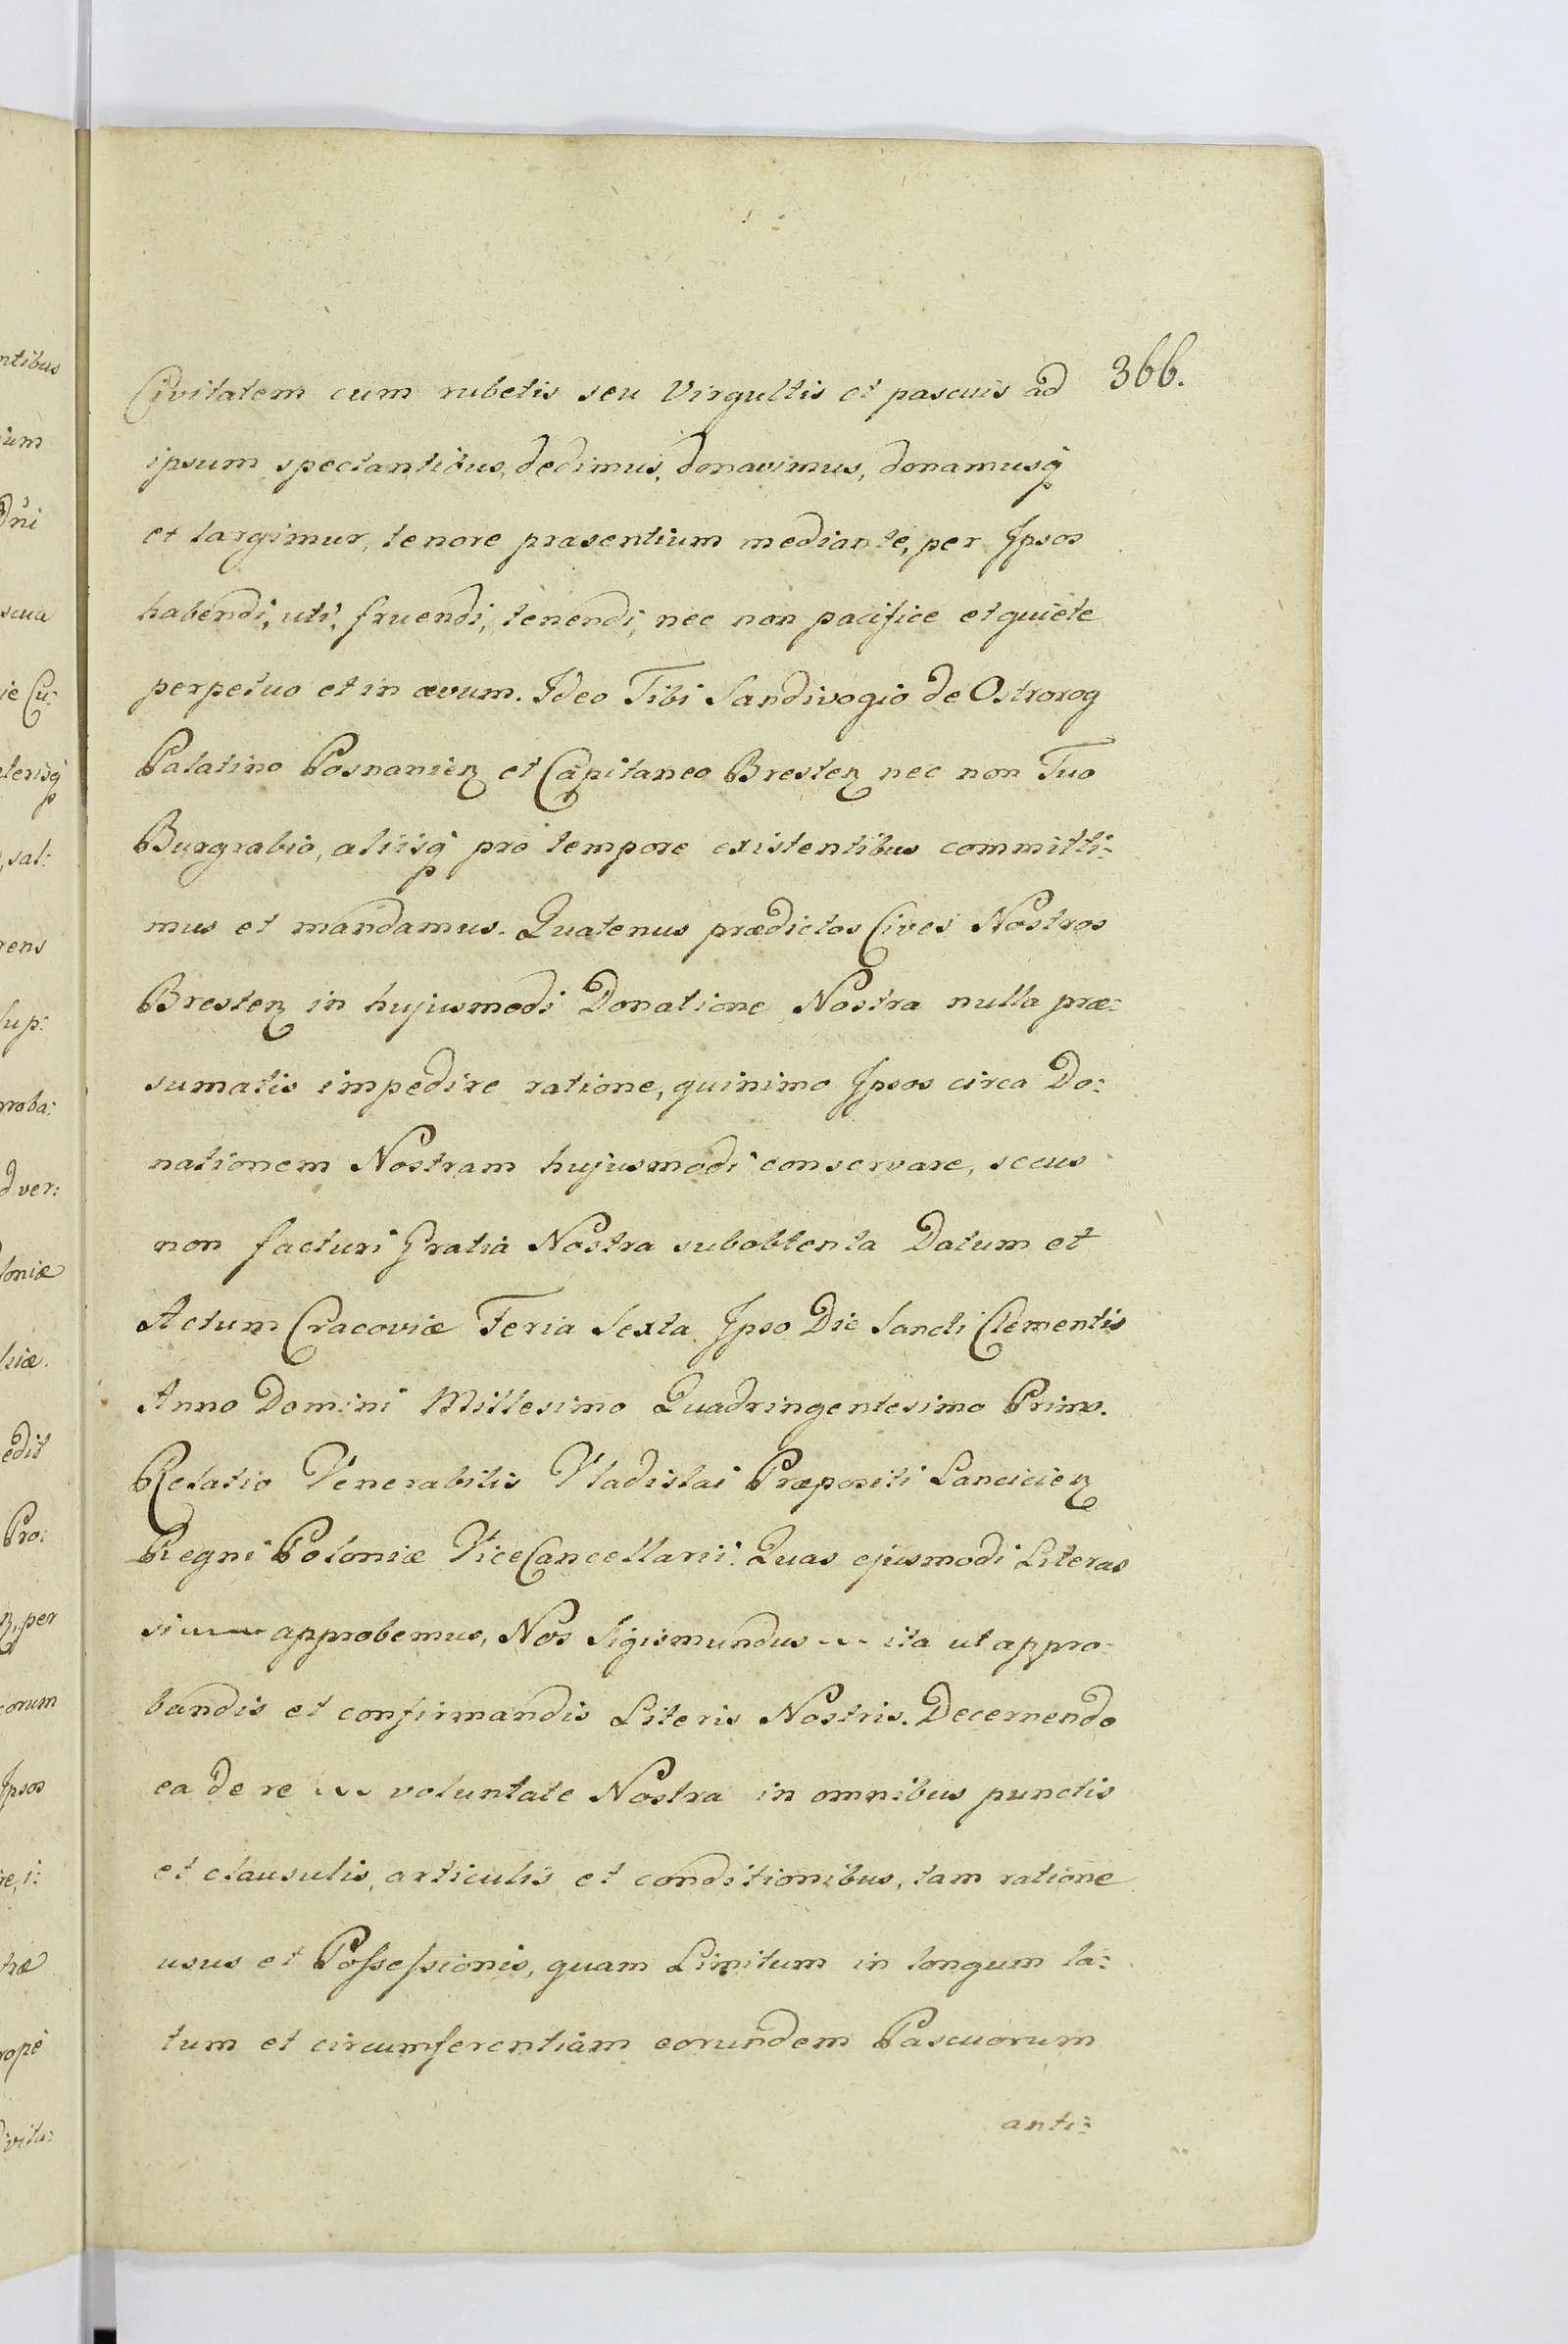 366.
Civitatem cum rubetis seu Virgultis et pascuis ad
ipsum spectantibus, dedimus, donavimus, donamusq́
et largimur, tenore præsentium mediante, per Ipsos
habendi, uti, fruendi, tenendi, nec non pacifice et quiete
perpetuo et in ævum. Ideo Tibi Sandivogio de Ostrorog
Palatino Posnanien̨ et Capitaneo Bresten̨ nec non Tuo
Burgrabio, aliisq́ pro tempore existentibus committi:
mus et mandamus. Quatenus prædictos Cives Nostros
Bresten̨ in hujusmodi Donatione Nostra nulla præ:
sumatis impedire ratione, quinimo Ipsos circa Do:
nationem Nostram hujusmodi conservare, secus
non facturi Gratia Nostra subobtenta Datum et
Actum Cracoviæ Feria Sexta Ipso Die Sancti Clementis
Anno Domini Millesimo Quadringentesimo Primo.
Relatio Venerabilis Vladislai Præpositi Lancicien̨
Regni Poloniæ ViceCancellarii. Quas ejusmodi Literas
si ~~~ approbemus, Nos Sigismundus ~~ ita ut appro:
bandis et confirmandis Literis Nostris. Decernendo
ea de re ~~ voluntate Nostra in omnibus punctis
et clausulis, articulis et conditionibus, tam ratione
usus et Possessionis, quam Limitum in longum la:
tum et circumferentiam eorundem Pascuorum
anti: